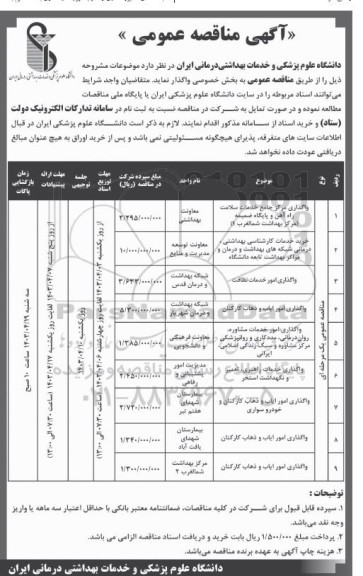 «آگهی مناقصه عمومی »
دانشگاه علوم پزشکی و خدمات بهداشتی‌درمانی ایران در نظر دارد موضوعات مشروحه
ذیل را از طریق مناقصه عمومی به بخش خصوصی واگذار نماید. متقاضیان واجد شرایط
می‌توانند اسناد مربوطه را در سایت دانشگاه علوم پزشکی ایران یا پایگاه ملی مناقصات
مطالعه نموده و در صورت تمایل به شرکت در مناقصه نسبت به ثبت نام در سامانه تدارکات الکترونیک دولت
(ستاد) و خرید اسناد از سامانه مذکور اقدام نمایند. لازم به ذکر است دانشگاه علوم پزشکی ایران در قبال
اطلاعات سایت های متفرقه، پذیرای هیچگونه مسئولیتی نمی باشد و پس از خرید اوراق به هیچ عنوان مبالغ
دریافتی عودت داده نخواهد شد.
ردیف نوع موضوع نام واحد مبلغ سپرده شرکت در مناقصه (ریال) مهلت توزیع اسناد جلسه توجیهی مهلت ارائه پیشنهادات زمان بازگشایی پاکات
مناقصه عمومی یک مرحله ای
۱ واگذاری مرکز جامع خدمات سلامت راه آهن و پایگاه ضمیمه (مرکز بهداشت شمالغرب ۲) معاونت بهداشتی
۲ خرید خدمات کارشناسی بهداشتی، درمانی شبکه های بهداشت و درمان و مراکز بهداشت تابعه دانشگاه معاونت توسعه مدیریت و منابع ۱۰/۰۰۰/۰۰۰/۰۰۰
۳ واگذاری امور خدمات نظافت شبکه بهداشت و درمان قدس
۴ واگذاری امور ایاب و ذهاب کارکنان شبکه بهداشت و درمان شهریار ۵/۳۰۰/۰۰۰/۰۰۰
۵ واگذاری امور خدمات مشاوره، روان‌درمانی، مددکاری و روانپزشکی مرکز مشاوره و سبک زندگی اسلامی، ایرانی معاونت فرهنگی و دانشجویی ۱/۳۸۵/۰۰۰/۰۰۰
۶ واگذاری خدمات راهبری، تعمیر و نگهداشت استخر مدیریت امور پشتیبانی و رفاهی ۲/۶۵۰/۰۰۰/۰۰۰
۷ واگذاری امور ایاب و ذهاب کارکنان و خودرو سواری بیمارستان شهدای هفتم تیر ۲/۷۳۰/۰۰۰/۰۰۰
۸ واگذاری امور ایاب و ذهاب کارکنان بیمارستان شهدای یافت آباد ۱/۳۴۰/۰۰۰/۰۰۰
۹ واگذاری امور ایاب و ذهاب کارکنان مرکز بهداشت شمالغرب ۲ ۱/۳۰۰/۰۰۰/۰۰۰
سه شنبه ۱۴۰۳/۰۴/۱۹ ساعت ۱۰ صبح
توضیحات :
۱. سپرده قابل قبول برای شرکت در کلیه مناقصات، ضمانتنامه معتبر بانکی با حداقل اعتبار سه ماهه یا واریز
وجه نقد می‌باشد.
۲. پرداخت مبلغ ۱/۵۰۰/۰۰۰ ریال بابت خرید و دریافت اسناد مناقصه الزامی می باشد.
۳. هزینه چاپ آگهی به عهده برنده مناقصه می‌باشد.
دانشگاه علوم پزشکی و خدمات بهداشتی درمانی ایران